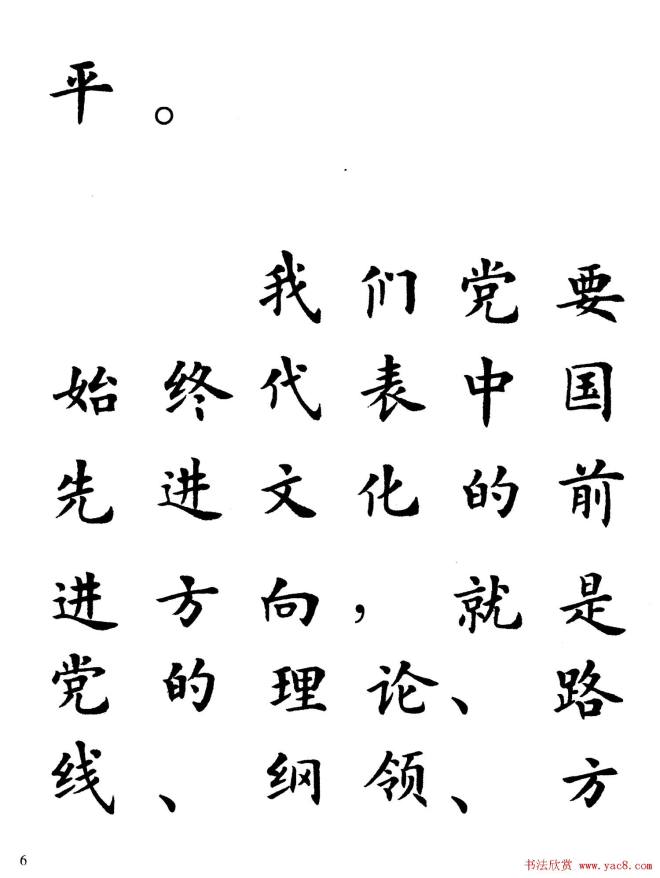 平。
我们党要
始终代表中国
先进文化的前
进方向，就是
党的理论、路
线、纲领、方
6
书法欣赏 www.yac8.com